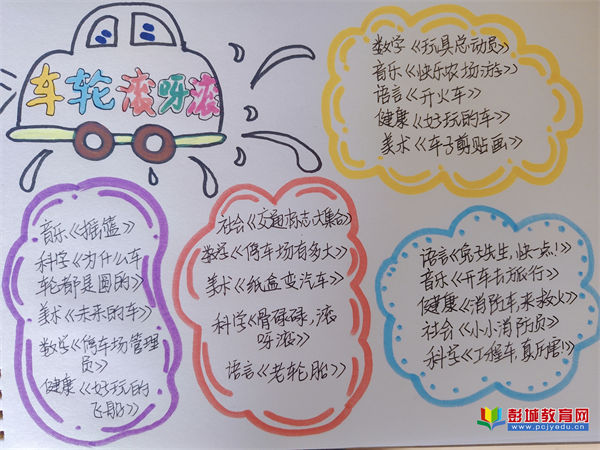 车轮滚呀滚
数学《玩具总动员》
音乐《快乐农场游》
语言《开火车》
健康《好玩的车》
美术《车子剪贴画》
音乐《摇篮》
科学《为什么车
轮都是圆的》
美术《未来的车》
数学《停车场管理
员》
健康《好玩的
飞船》
社会《交通标志大集合》
数学《停车场有多大》
美术《纸盒变汽车》
科学《骨碌碌，滚
呀滚》
语言《老轮胎》
语言《兔子先生，快一点！》
音乐《开车去旅行》
健康《消防车来救火》
社会《小小消防员》
科学《工程车，真厉害！》
彭城教育网
www.pcjyedu.cn